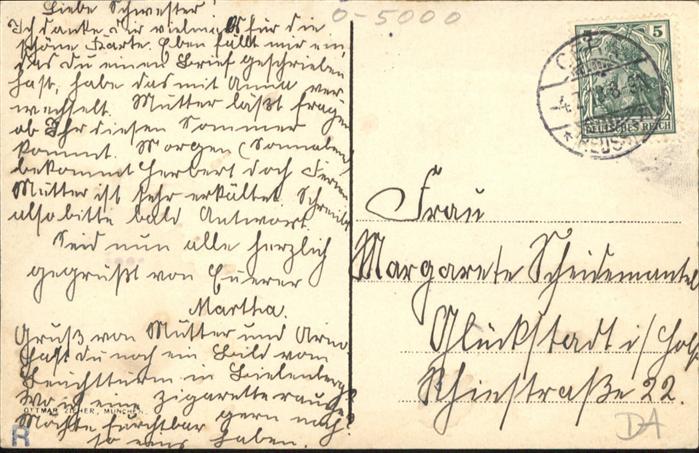 Liebe Schwester!
Ich danke Dir vielmals für die
schöne Karte. Eben fällt mir ein,
das du einen Brief geschrieben
hast, habe das mit Anna ver-
wechselt. Mutter läßt fragen
ob Ihr diesen Sommer
kommt. Morgen (Sonnabend)
bekommt Herbert doch Ferien
Mutter ist sehr erkältet. Schreibe
also bitte bald Antwort.
Seid nun alle herzlich
gegrüßt von Euerer
Martha.
Gruß von Mutter und Arno
Hast du noch ein Bild vom
Leuchtturm in Bielenberg?
wo ich eine Zigarette rauche?
Möchte furchtbar gern noch
so eins haben.
OTTMAR ZIEHER, MÜNCHEN.
R
0-5000
5
DEUTSCHES REICH
Frau
Margarete Scheidemantel
Glückstadt i/Hols
Rhinstraße 22.
DA